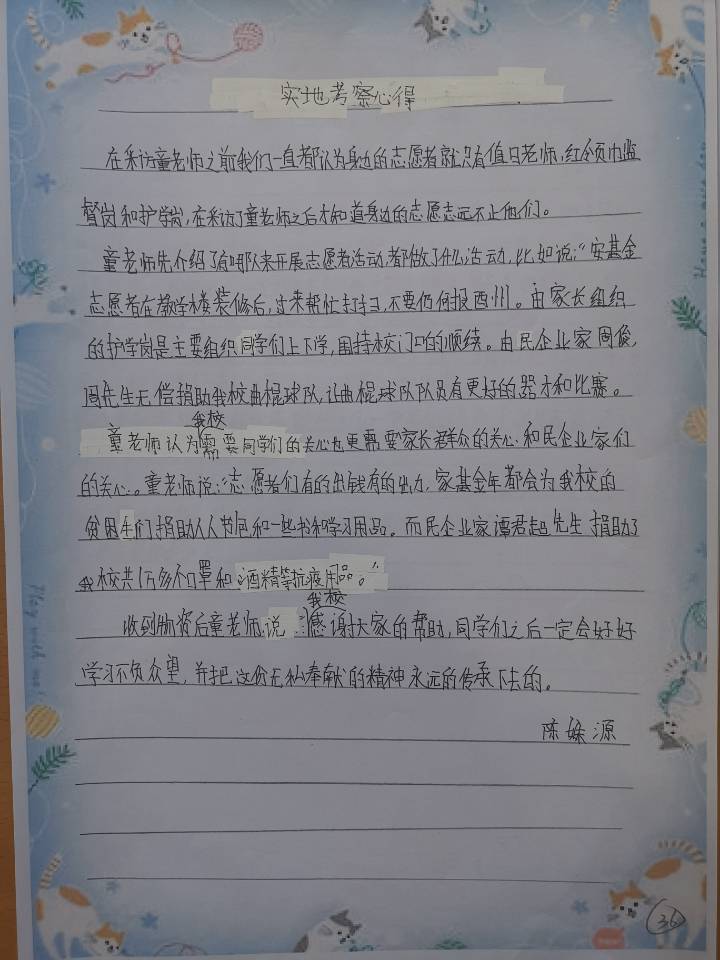 实地考察心得
在采访童老师之前我们一直都认为身边的志愿者就只有值日老师,红领巾监
督岗和护学岗,在采访了童老师之后才知道身边的志愿志远不止他们。
童老师先介绍了有哪队来开展志愿者活动,都做了什么活动,比如说:“安基金
志愿者在教学楼装修后,过来帮忙打扫,不要任何报酬。由家长组织
的护学岗是主要组织同学们上下学,围持校门口的顺续。由民企业家周俊,
周先生无偿捐助我校曲棍球队,让曲棍球队队员有更好的器才和比赛。
我校
童老师认为需要同学们的关心也更需要家长群众的关心和民企业家们
的关心。童老师说:“志愿者们有的出钱有的出力,家基金年都会为我校的
贫困生们捐助人人节包和一些书和学习用品。而民企业家谭君起先生捐助了
我校共1万多个口罩和酒精等抗疫用品。”
我校
收到物资后童老师说:感谢大家的帮助,同学们之后一定会好好
学习不负众望,并把这份无私奉献的精神永远的传承下去的。
陈 源
36
Play with me!